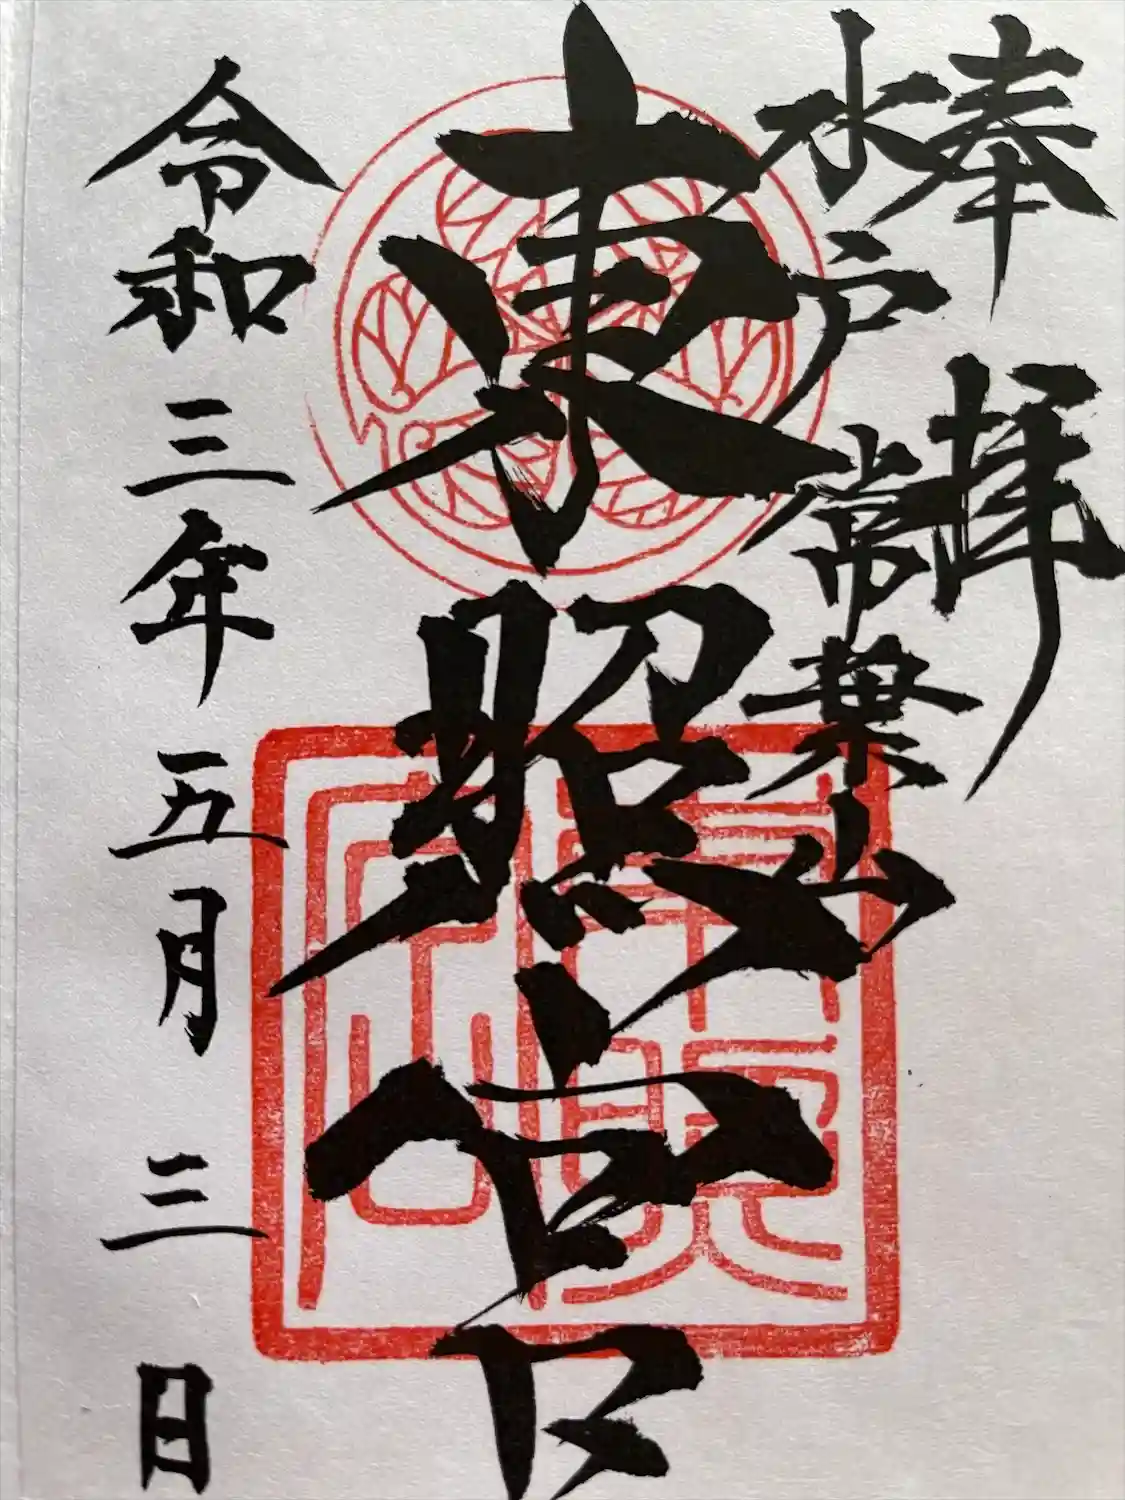 奉拝
水戸常葉山
東照宮
令和三年五月三日